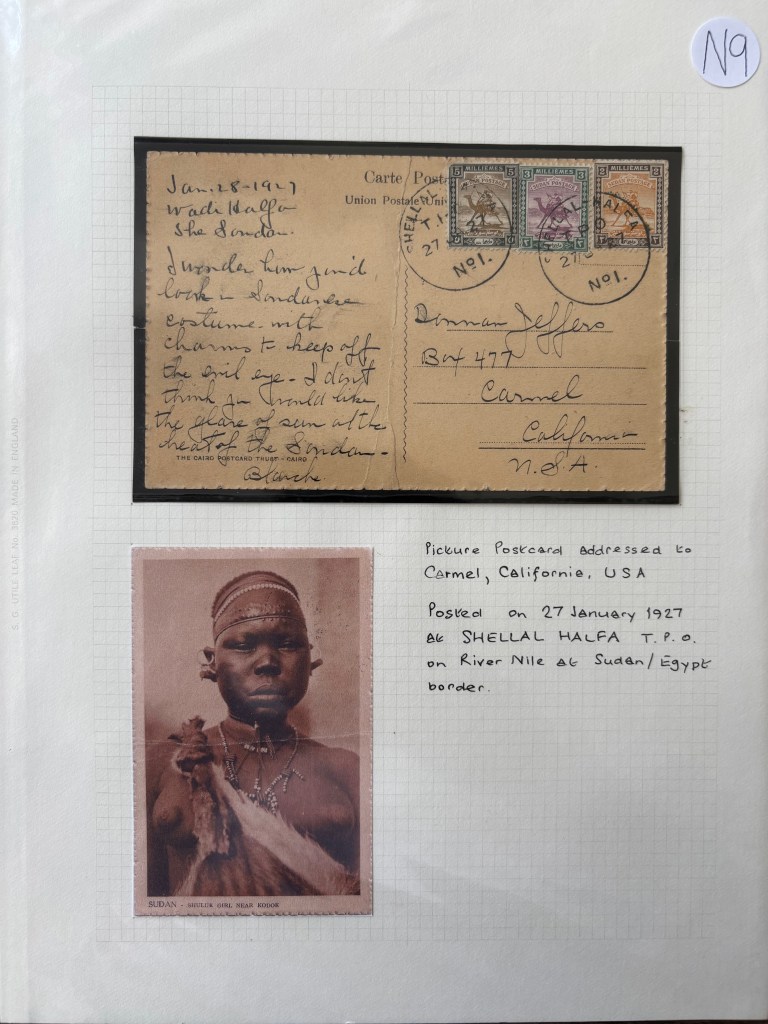 N9
Carte Posta
Union Postale Uni
5 MILLIEMES 5
SUDAN POSTAGE
3 MILLIEMES 3
SUDAN POSTAGE
2 MILLIEMES 2
SUDAN POSTAGE
SHELLAL HALFA
T.P.O.
27
No 1.
SHELLAL-HALFA
T.P.O.
27
No 1.
Jan. 28-1927
Wadi Halfa
The Soudan.
I wonder how you'd
look in Soudanese
costume - with
charms to keep off
the evil eye - I don't
think you would like
the glare of sun or the
heat of the Soudan -
Blanche
THE CAIRO POSTCARD TRUST - CAIRO
Donnan Jeffers
Box 477
Carmel
California
U.S.A.
Picture Postcard addressed to
Carmel, California, USA
Posted on 27 January 1927
at SHELLAL HALFA T.P.O.
on River Nile at Sudan/Egypt
border.
SUDAN - SHULUK GIRL NEAR KODOK
S. G. UTILE LEAF, No. 3030 MADE IN ENGLAND